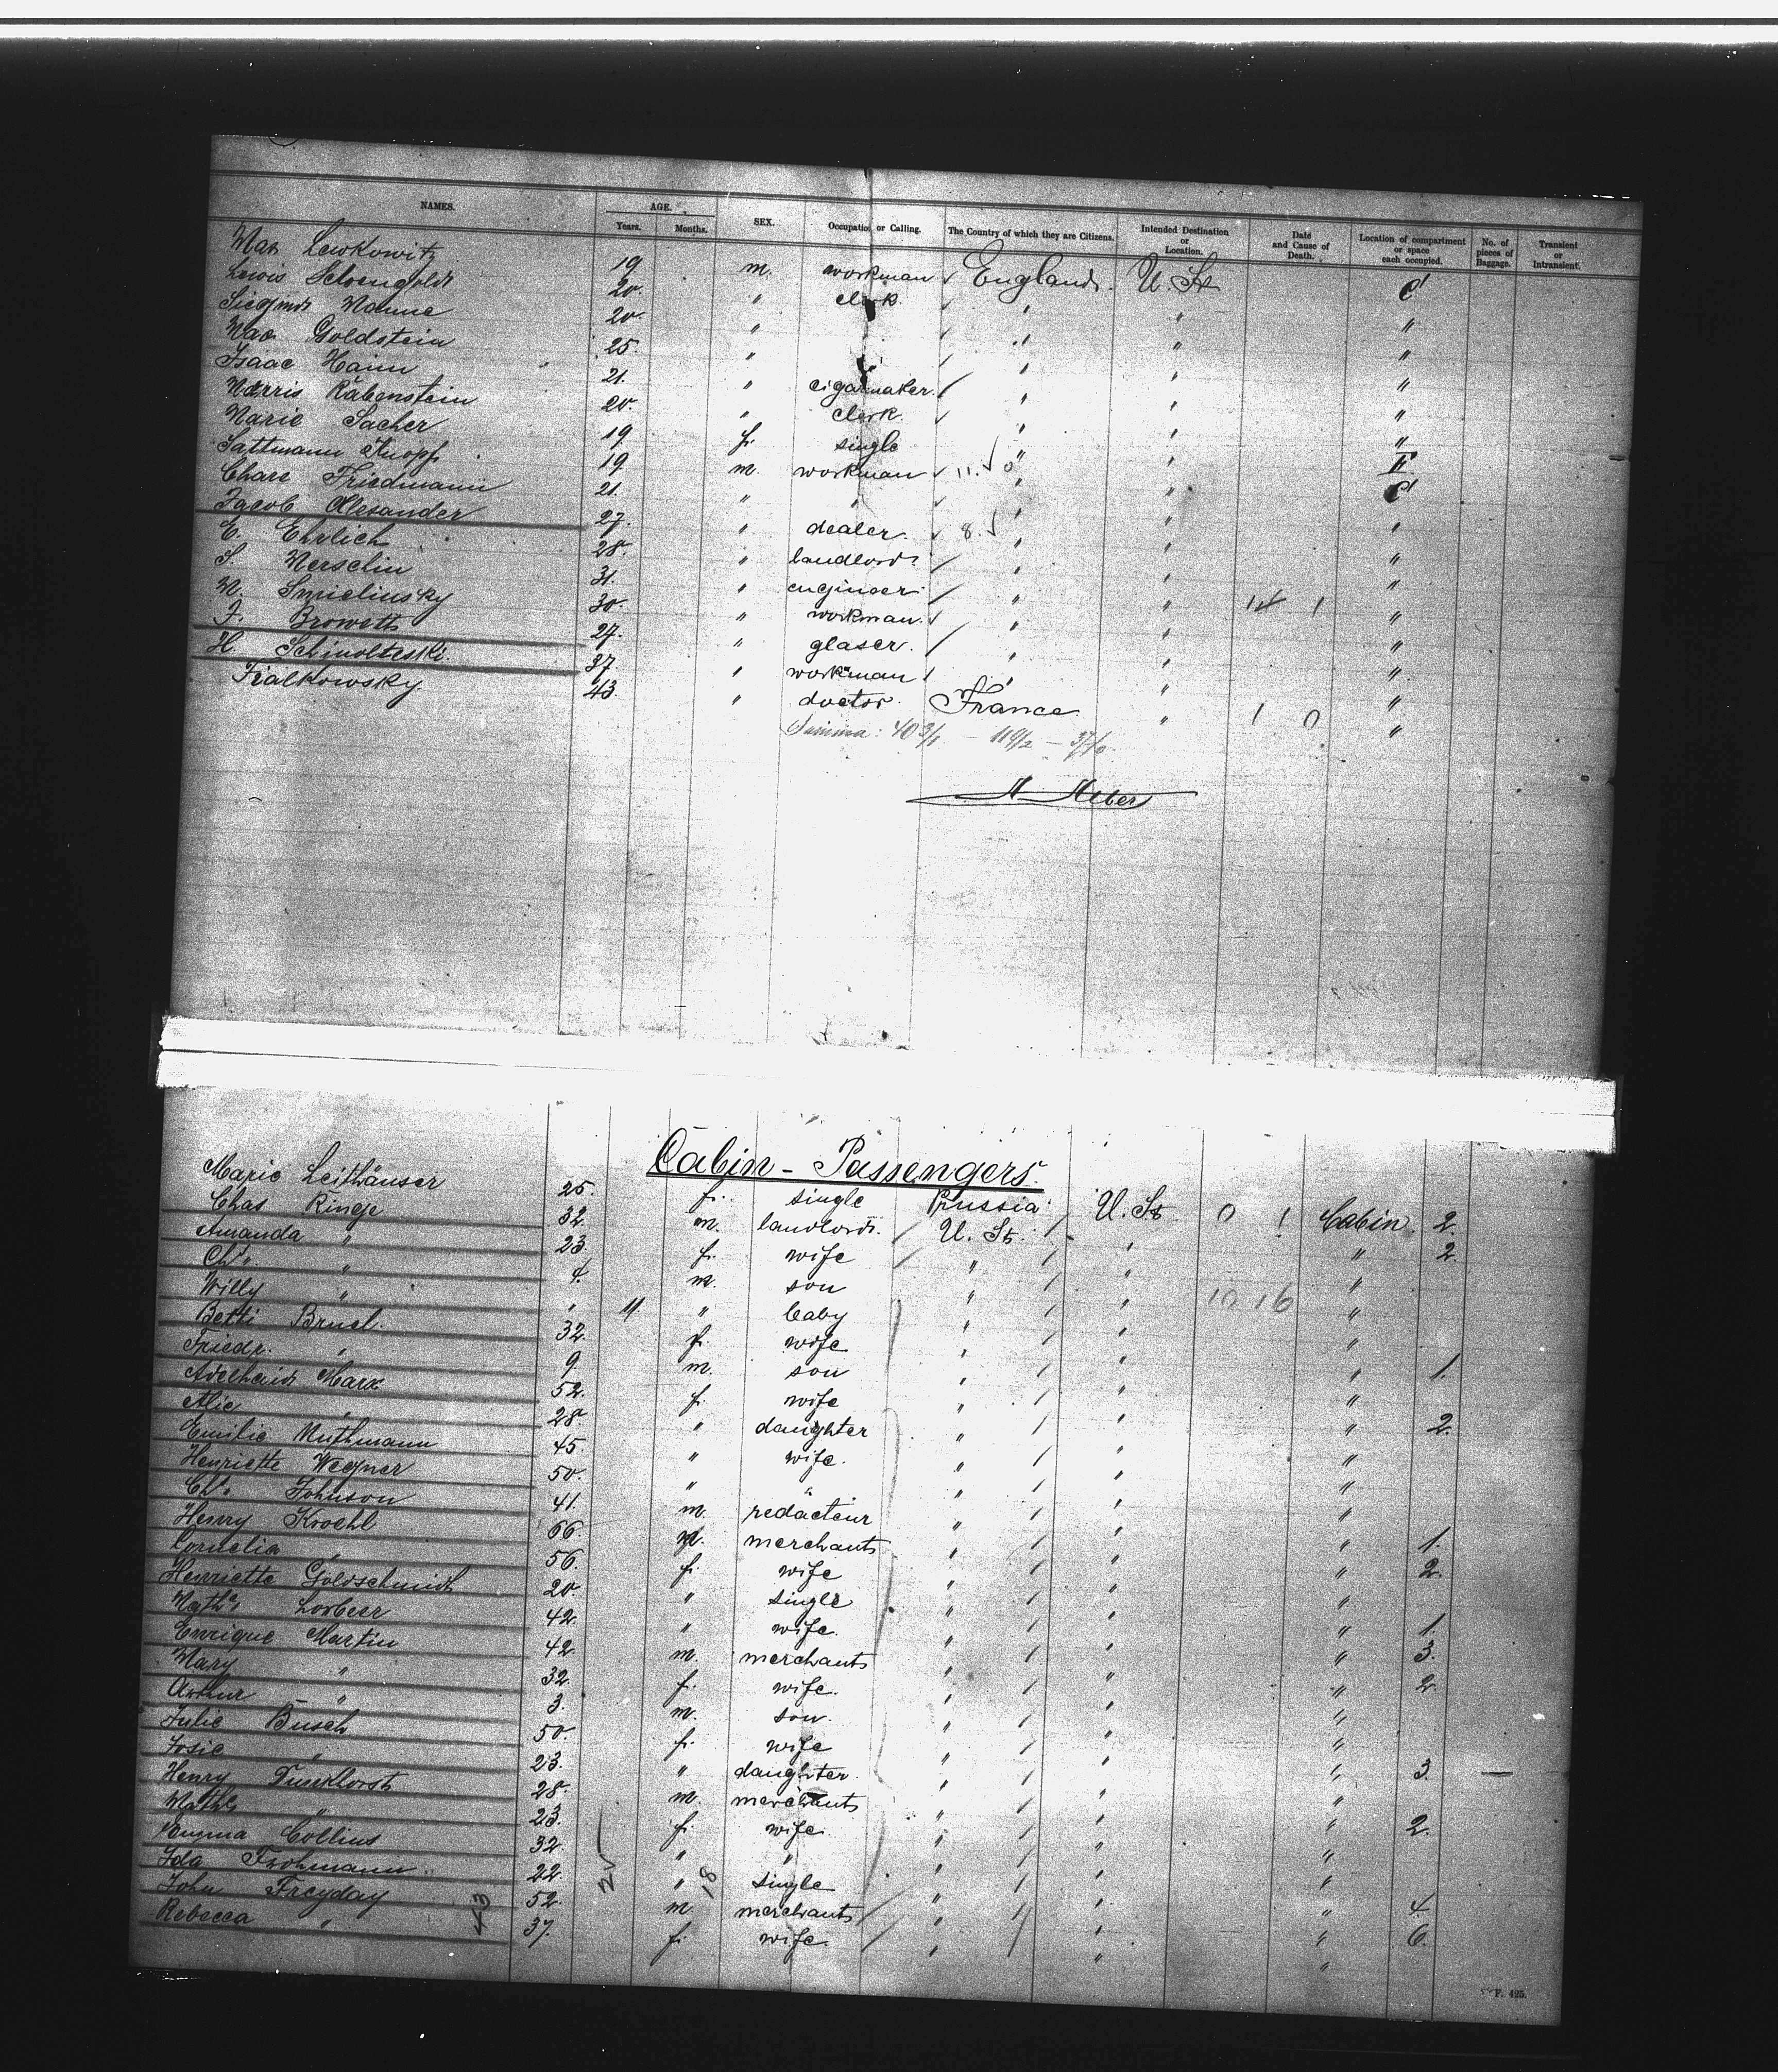 NAMES. AGE. Years. Months. SEX. Occupation or Calling. The Country of which they are Citizens. Intended Destination or Location. Date and Cause of Death. Location of compartment or space each occupied. No. of pieces of Baggage. Transient or Intransient.
Max Lewkowitz 19 m. workman England. U. St C
Lewis Schoengold 20. " clerk. " " "
Siegmd Manne 20. " " " "
Max Goldstein 25. " " " "
Isaac Haim 21. " cigarmaker. " " "
Morris Rabenstein 20. " clerk. " " "
Marie Sacher 19 f. single " " F
Sattmann Knopf 19. m. workman 11. 0 " " C
Chare Friedmann 21. " " " " "
Jacob Alexander 27. " dealer. 8. " " "
E. Ehrlich 28. " landlord " " "
S. Herschn 31. " engineer " " "
M. Smielinsky 30. " workman. " " 14 1 "
J. Browett 27. " glaser. " " "
H. Schmolteski. 37. " workman " " "
Fialkowsky 43. " doctor. France " 1 0 "
Summa: 40 3/1 — 119/2 — 37/0
Cabin - Passengers.
Marie Leithäuser 25. f. single Prussia U. St 0 1 Cabin 2.
Chas Ringe 32. m. landlord. U. St. " " 2.
Amanda " 23. f. wife " " "
Chs. " 4. m. son " " 10 16 "
Willy " " 11. " baby " " "
Betti Bruel. 32. f. wife " " " 1.
Friedr. " 9. m. son " " "
Adelheid Marx 52. f. wife " " " 2.
Alie " 28 " daughter " " "
Emilie Muthmann 45. " wife. " " "
Henriette Wegner 50. " " " " "
Chs. Johnson 41. m. redacteur " " " 1.
Henry Kroehl 66. m. merchants " " " 2.
Cornelia " 56. f. wife " " "
Henriette Goldschmidt 20. " single " " " 1.
Mathe. Lorbeer 42. " wife. " " " 3.
Enrique Martin 42. m. merchants " " " 2.
Mary " 32. f. wife. " " "
Arthur " 3. m. son. " " "
Julie Busch 50. f. wife " " " 3. —
Josie " 23. " daughter. " " "
Henry Dusehorst 28. m. merchants " " " 2.
Mathe " 23. f. wife. " " "
Emma Collins 32. " " " " "
Ida Frohmann. 22. " single " " " 4.
John Freyday 52. m. merchants " " " 6.
Rebecca " 37. f. wife. " " "
43 25 18
F. 425.